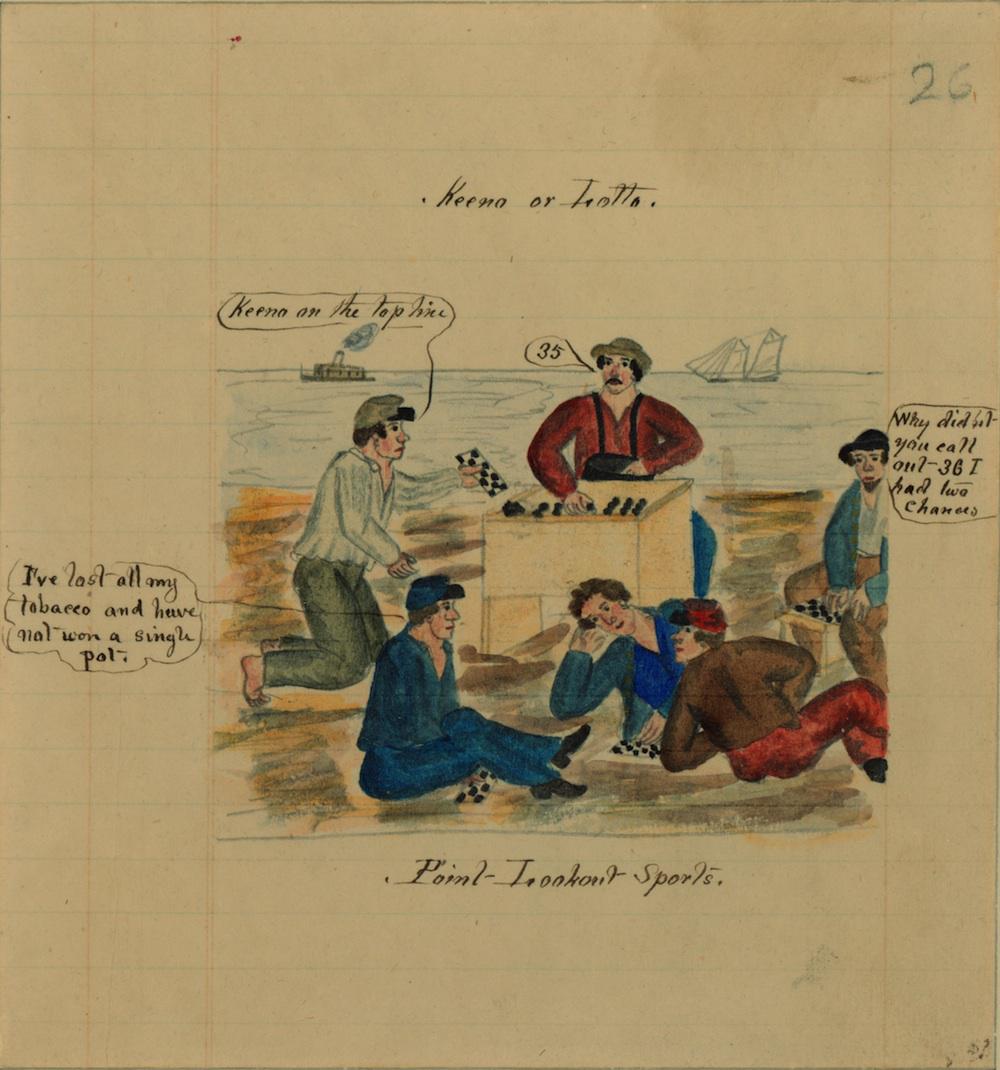 26
. Keeno or Lotto.
Keeno on the top line
35
Why didn't
you call
out 36 I
had two
chances
I've lost all my
tobacco and have
not won a single
pot.
. Point Lookout Sports.